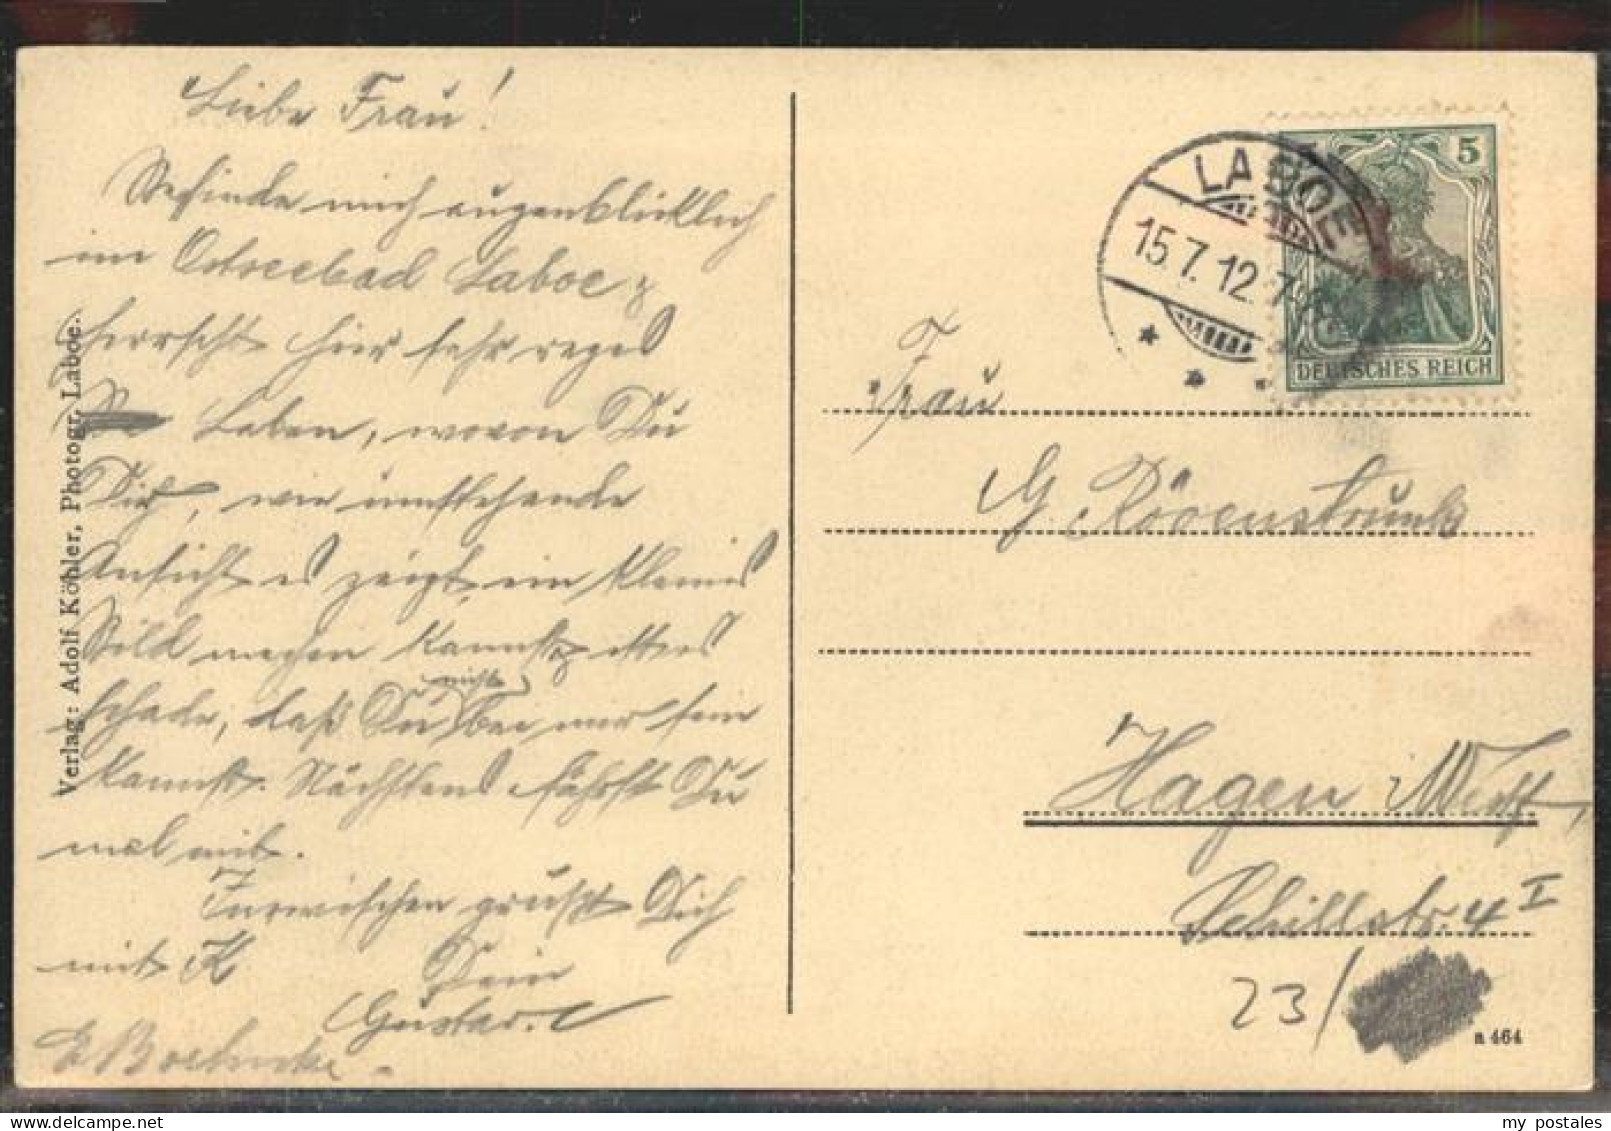 Liebe Frau!
Befinde mich augenblicklich
im Ostseebad Laboe &
herrscht hier sehr reges
Leben, wovon Du
Dir, wie umstehende
Ansicht es zeigt, ein kleines
Bild machen kannst,
schade, daß Du nicht bei mir sein
kannst. Nächstens fährst Du
mal mit.
Inzwischen grüßt Dich
mit K
Dein
Gustav.
Verlag: Adolf Köhler, Photogr. Laboe.
LABOE
15.7.12.7
5
DEUTSCHES REICH
Frau
G. Rövenstrunk
Hagen Westf,
Schillstr. 4 I
23/
a 464
my postales